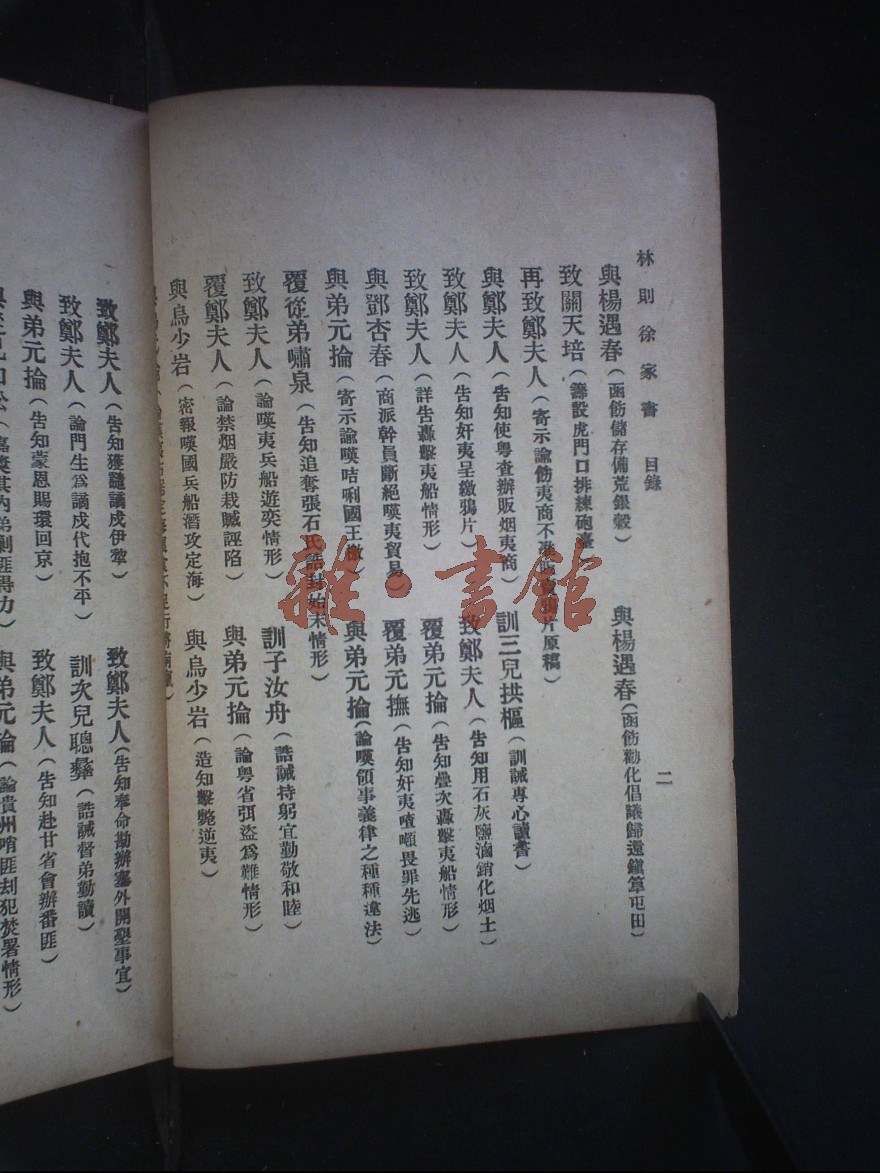 林則徐家書 目錄 二
與楊遇春（函飭儲存備荒銀穀） 與楊遇春（函飭勸化倡議歸還鎭筸屯田）
致關天培（籌設虎門口排練砲臺）
再致鄭夫人（寄示諭飭夷商不准販賣鴉片原稿）
與鄭夫人（告知使粵查辦販烟夷商） 訓三兒拱樞（訓誡專心讀書）
致鄭夫人（告知奸夷呈繳鴉片） 致鄭夫人（告知用石灰鹽滷銷化烟土）
致鄭夫人（詳告轟擊夷船情形） 覆弟元掄（告知疊次轟擊夷船情形）
與鄧杏春（商派幹員斷絕嘆夷貿易） 覆弟元撫（告知奸夷喳噸畏罪先逃）
與弟元掄（寄示諭嘆咭唎國王檄） 與弟元掄（論嘆領事義律之種種違法）
覆從弟嘯泉（告知追奪張石氏誥封始末情形）
致鄭夫人（論嘆夷兵船遊奕情形） 訓子汝舟（誥誡持躬宜勤敬和睦）
覆鄭夫人（論禁烟嚴防栽贓誣陷） 與弟元掄（論粵省弭盜爲難情形）
與烏少岩（密報嘆國兵船潛攻定海） 與烏少岩（造知擊斃逆夷）
致鄭夫人（告知獲譴謫戍伊犂） 致鄭夫人（告知奉命勘辦塞外開墾事宜）
致鄭夫人（論門生爲謫戍代抱不平） 訓次兒聰彝（誥誡督弟勤讀）
與弟元掄（告知蒙恩賜環回京） 致鄭夫人（告知赴甘省會辦番匪）
（嘉獎其內弟剿匪得力） 與弟元掄（論貴州哨匪刦犯焚署情形）
雜·書館